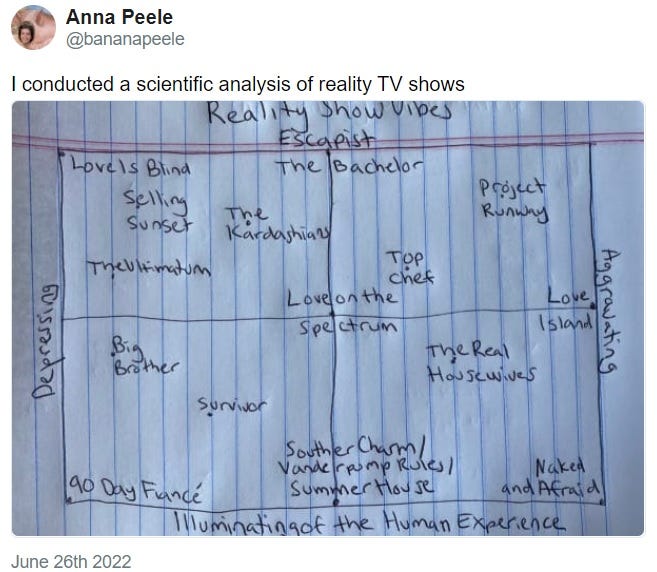 Anna Peele
@bananapeele
I conducted a scientific analysis of reality TV shows
Reality Show Vibes
Escapist
Love Is Blind
The Bachelor
Selling
Sunset
The
Kardashians
Project
Runway
The Ultimatum
Top
Chef
Love on the
Spectrum
Love
Island
Depressing
Aggravating
Big
Brother
The Real
Housewives
Survivor
Souther Charm/
Vanderpump Rules/
Summer House
Naked
and Afraid
90 Day Fiancé
Illuminating of the Human Experience
June 26th 2022